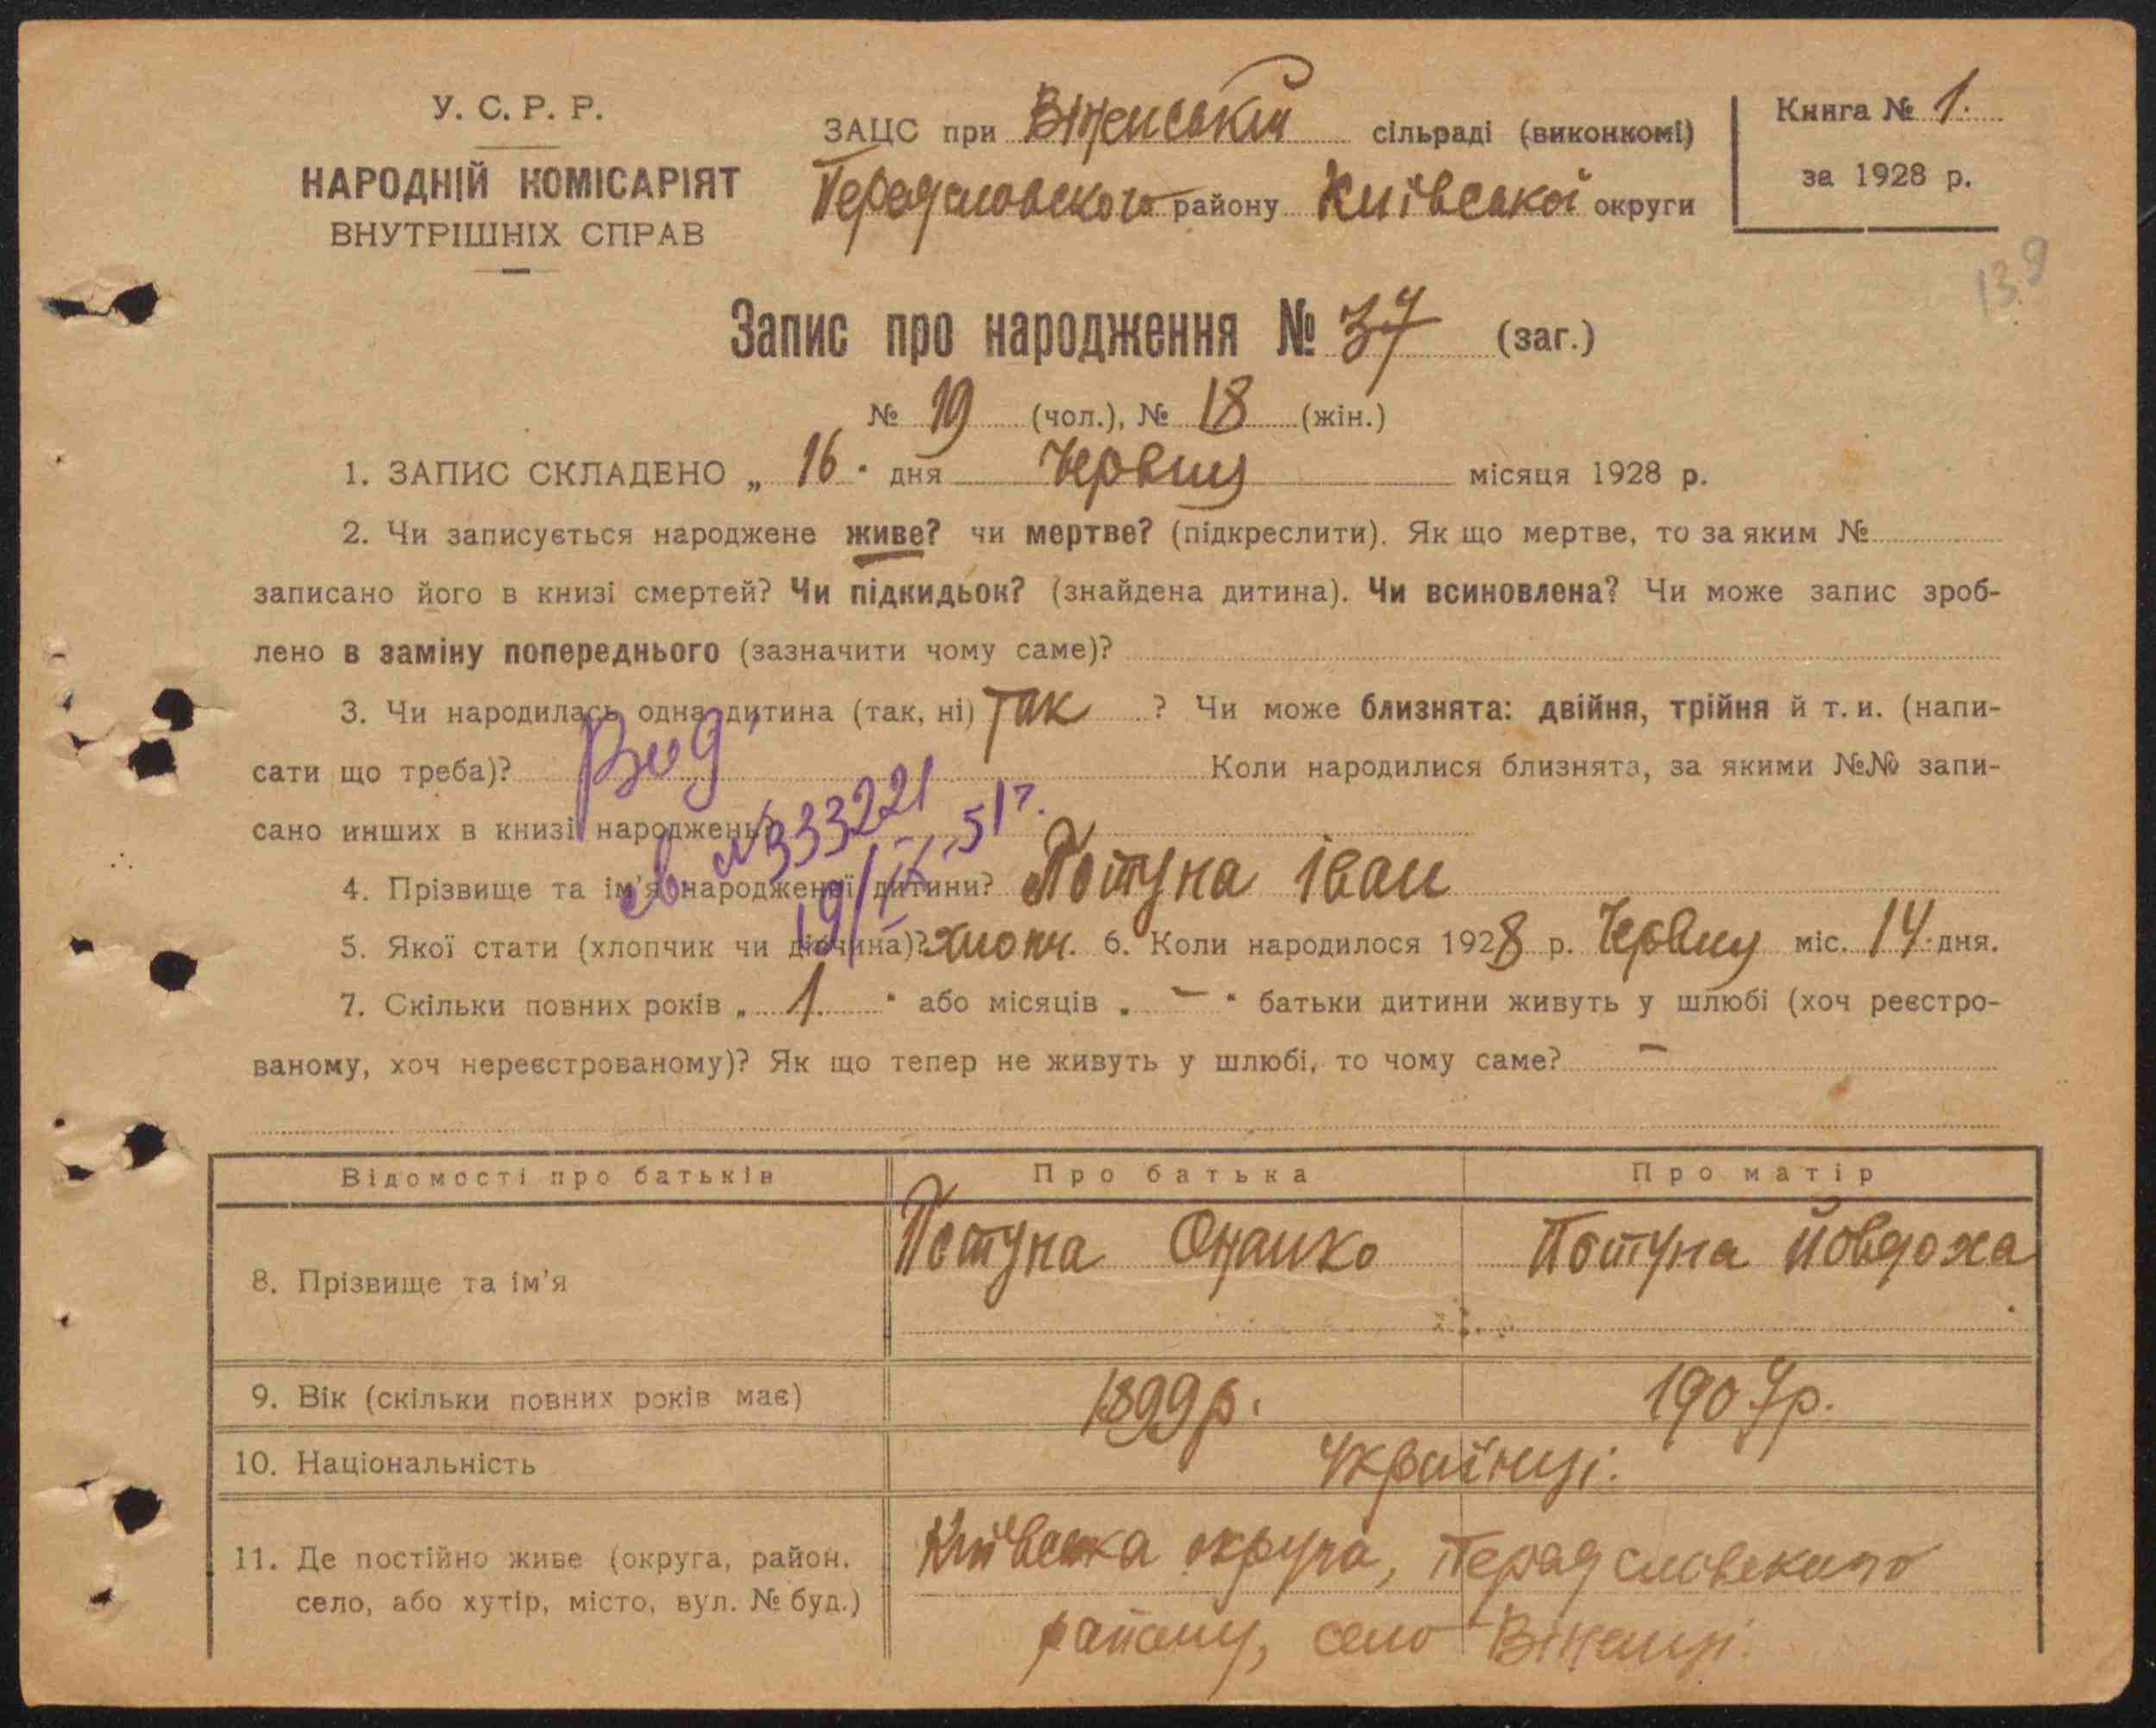 У. С. Р. Р.
НАРОДНІЙ КОМІСАРІЯТ
ВНУТРІШНІХ СПРАВ
ЗАЦС при Віненській сільраді (виконкомі)
Передславского району Київської округи
Книга № 1.
за 1928 р.
139
Запис про народження № 37 (заг.)
№ 19 (чол.), № 18 (жін.)
1. ЗАПИС СКЛАДЕНО „ 16 " дня Червця місяця 1928 р.
2. Чи записується народжене живе? чи мертве? (підкреслити). Як що мертве, то за яким №
записано його в книзі смертей? Чи підкидьок? (знайдена дитина). Чи всиновлена? Чи може запис зроб-
лено в заміну попереднього (зазначити чому саме)?
3. Чи народилась одна дитина (так, ні) Так ? Чи може близнята: двійня, трійня й т. и. (напи-
сати що треба)? Коли народилися близнята, за якими №№ запи-
сано инших в книзі народжень?
Выд.
св №333221
19/IX 51 г.
4. Прізвище та ім'я народженої дитини? Потуна Іван
5. Якої стати (хлопчик чи дівчина)? хлопч. 6. Коли народилося 1928 р. Червця міс. 14 дня.
7. Скільки повних років „ 1. " або місяців „ — " батьки дитини живуть у шлюбі (хоч реєстро-
ваному, хоч нереєстрованому)? Як що тепер не живуть у шлюбі, то чому саме? —
Відомості про батьків Про батька Про матір
8. Прізвище та ім'я Потуна Потуна Йовдоха
9. Вік (скільки повних років має) 1899 р. 1907 р.
10. Національність Українці.
11. Де постійно живе (округа, район, Київська округа,
село, або хутір, місто, вул. № буд.) району, село